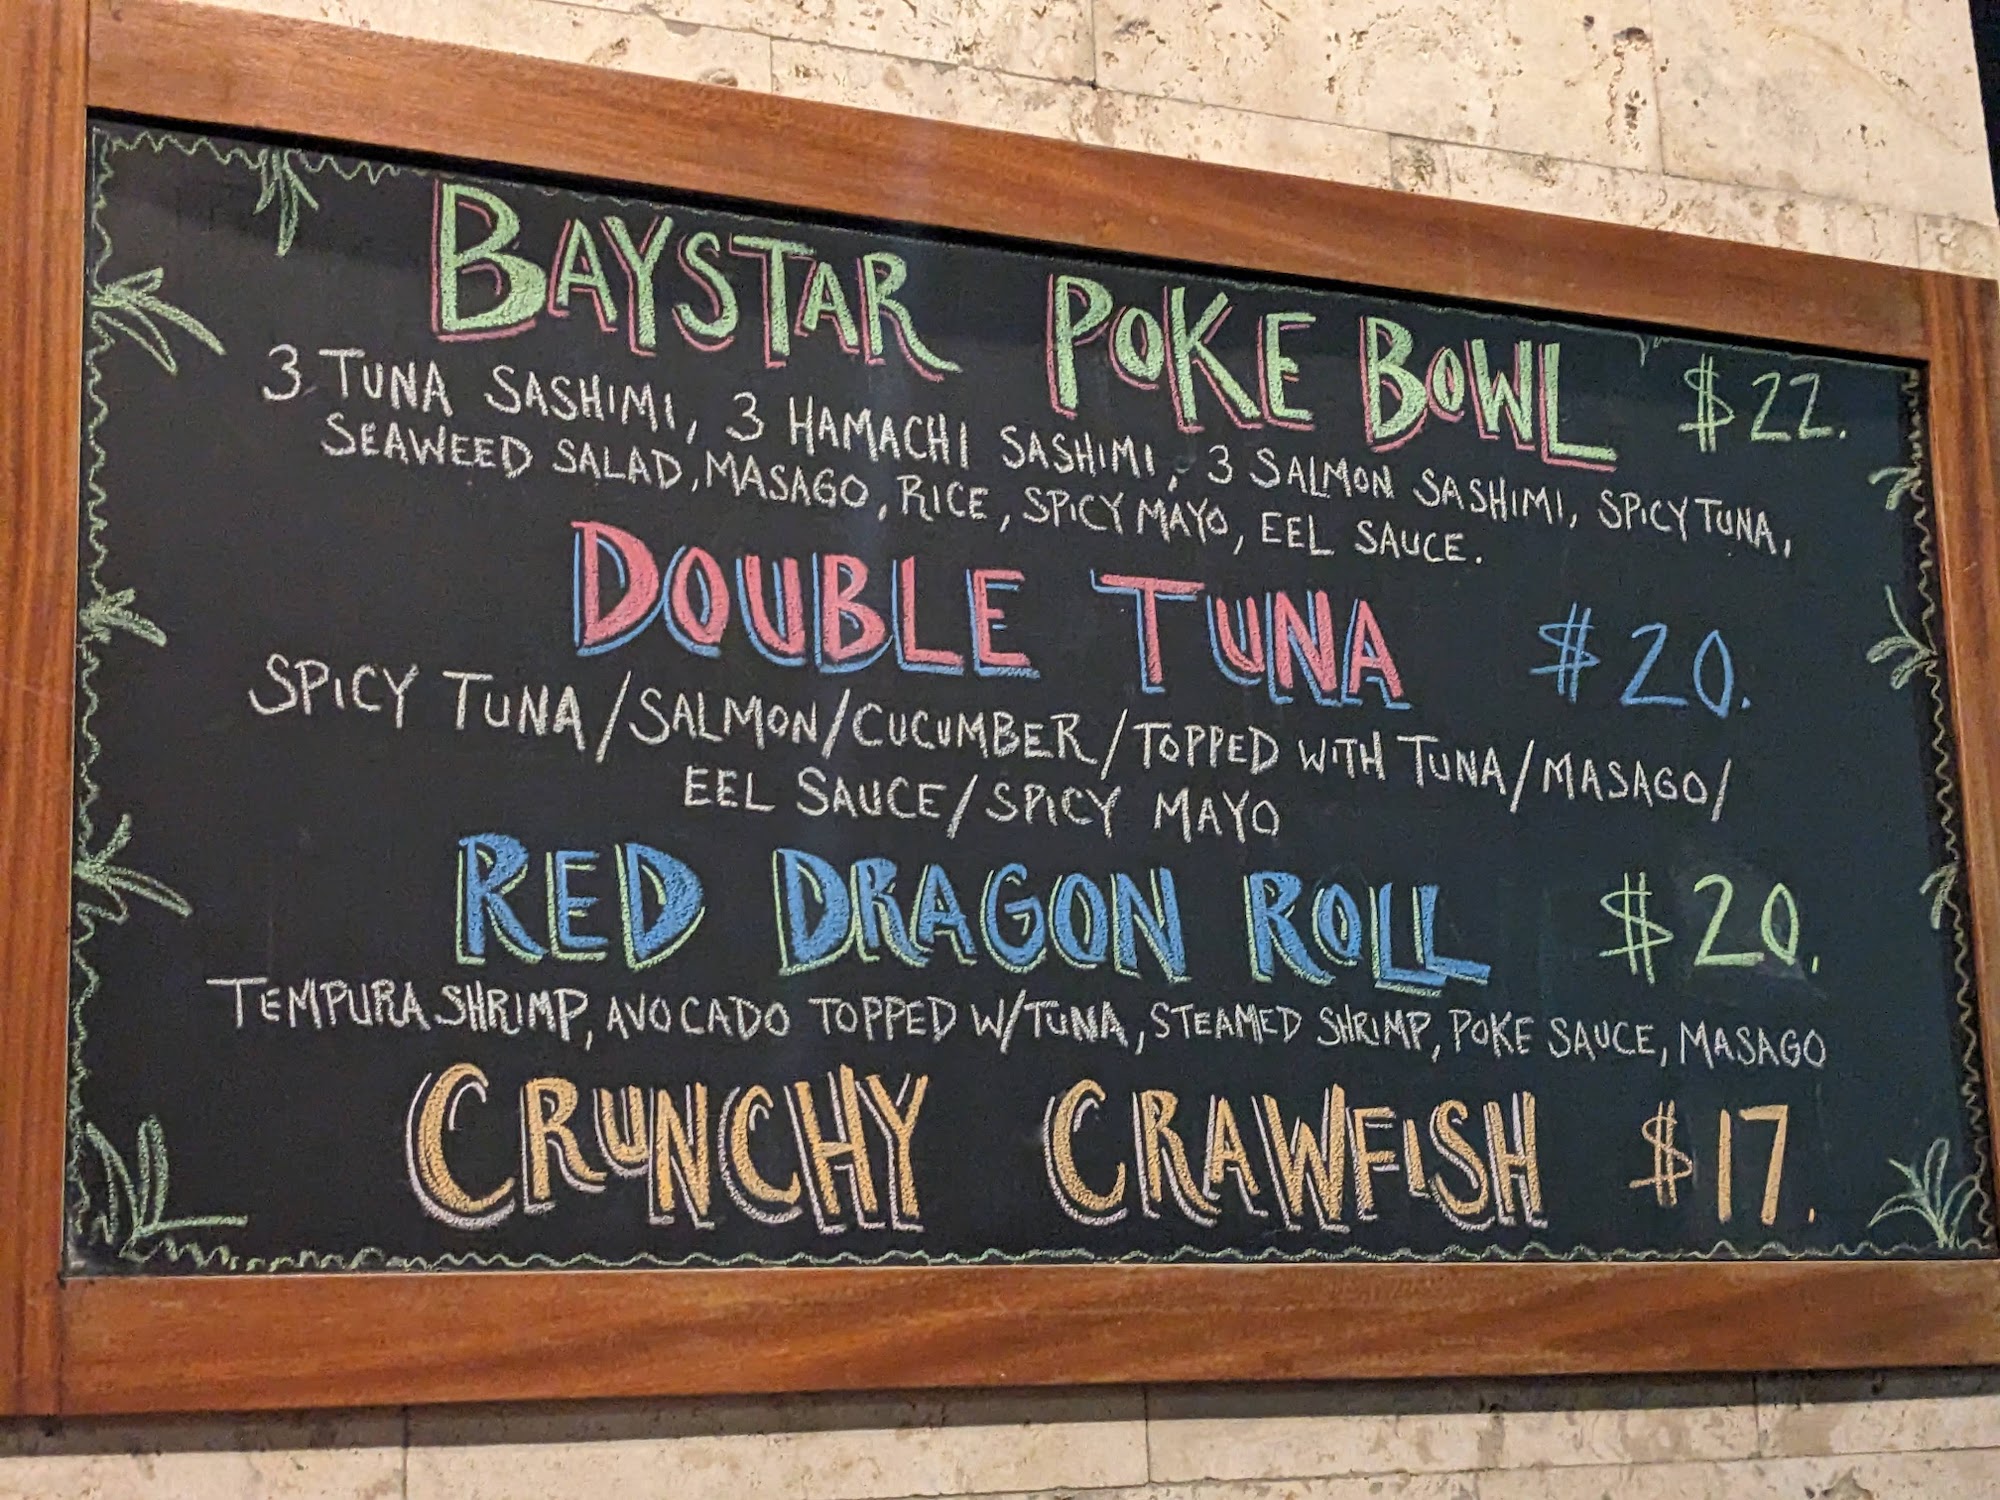 BAYSTAR POKE BOWL $22.
3 TUNA SASHIMI, 3 HAMACHI SASHIMI, 3 SALMON SASHIMI, SPICY TUNA,
SEAWEED SALAD, MASAGO, RICE, SPICY MAYO, EEL SAUCE.
DOUBLE TUNA $20.
SPICY TUNA/SALMON/CUCUMBER/TOPPED WITH TUNA/MASAGO/
EEL SAUCE/SPICY MAYO
RED DRAGON ROLL $20.
TEMPURA SHRIMP, AVOCADO TOPPED W/TUNA, STEAMED SHRIMP, POKE SAUCE, MASAGO
CRUNCHY CRAWFISH $17.